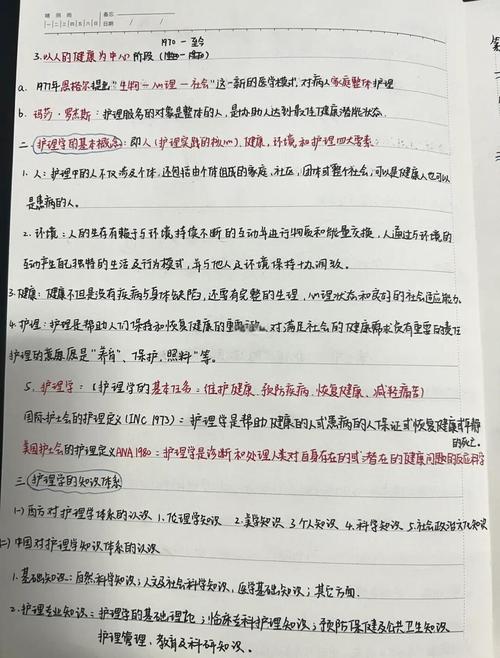 晴 阴 雨 备忘
一 二 三 四 五 六 日 日期 / /
1970 — 至今
3.以人的健康为中心阶段
a. 1977年恩格尔提出“生物—心理—社会”这一新的医学模式,对病人家庭整体护理
b. 玛莎·罗杰斯:护理服务的对象是整体的人,是协助人达到最佳健康潜能状态.
二 护理学的基本概念:即人(护理实践的核心)、健康,环境和护理四大要素
1. 人:护理中的人不仅涉及个体,还包括由个体组成的家庭、社区,团体或整个社会,可以是健康人也可以
是患病的人。
2. 环境:人的生存有赖于与环境持续不断的互动并进行物质和能量交换,人通过与环境的
互动产生独特的生活及行为模式,并与他人及环境保持协调。
3.健康:健康不但是没有疾病与身体缺陷,还要有完整的生理,心理状态和良好的社会适应能力。
4.护理:护理是帮助人们保持和恢复健康的重要,对满足社会的健康需求负有重要的责任
护理的英原是“养育、保护、照料”等。
5. 护理学:(护理学的基本任务:维护健康、预防疾病、恢复健康、减轻痛苦)
国际护士会的护理定义(INC 1973):护理学是帮助健康的人或患病的人保证或恢复健康或平静
的死亡。
美国护士会的护理定义ANA 1980:护理学是诊断和处理人类对自身存在的或潜在的健康问题的反应科学
三 护理学的知识体系
(一)西方对护理学体系的认识 1.伦理学知识 2.美学知识 3个人知识 4.科学知识 5.社会政治文化知识
(二)中国对护理学知识体系的认识
1.基础知识:自然科学知识;人文及社会科学知识,医学基础知识;其它方面.
2.护理专业知识:护理学的基础理论;临床专科护理知识;预防保健及公共卫生知识
护理管理、教育及科研知识。